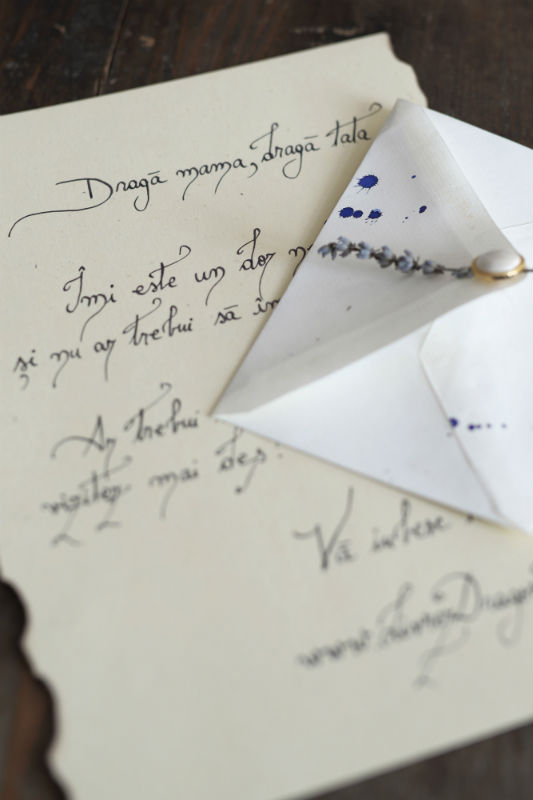 Dragā mama, dragā tata
Îmi este un dor
și nu ar trebui sā în
Ar trebui
vizitez mai des
Vā iubesc